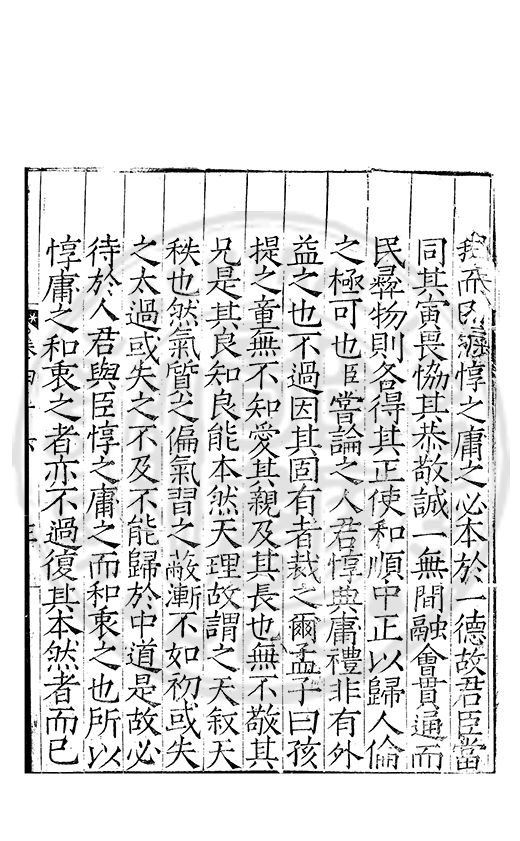 而惇之庸之必本於一德故君臣當
同其寅畏恊其恭敬誠一無間融會貫通而
民彛物則各得其正使和順中正以歸人倫
之極可也臣嘗論之人君惇典庸禮非有外
益之也不過因其固有者裁之爾孟子曰孩
提之童無不知愛其親及其長也無不敬其
兄是其良知良能本然天理故謂之天敘天
秩也然氣質之偏氣習之蔽漸不如初或失
之太過或失之不及不能歸於中道是故必
待於人君與臣惇之庸之而和衷之也所以
惇庸之和衷之者亦不過復其本然者而已